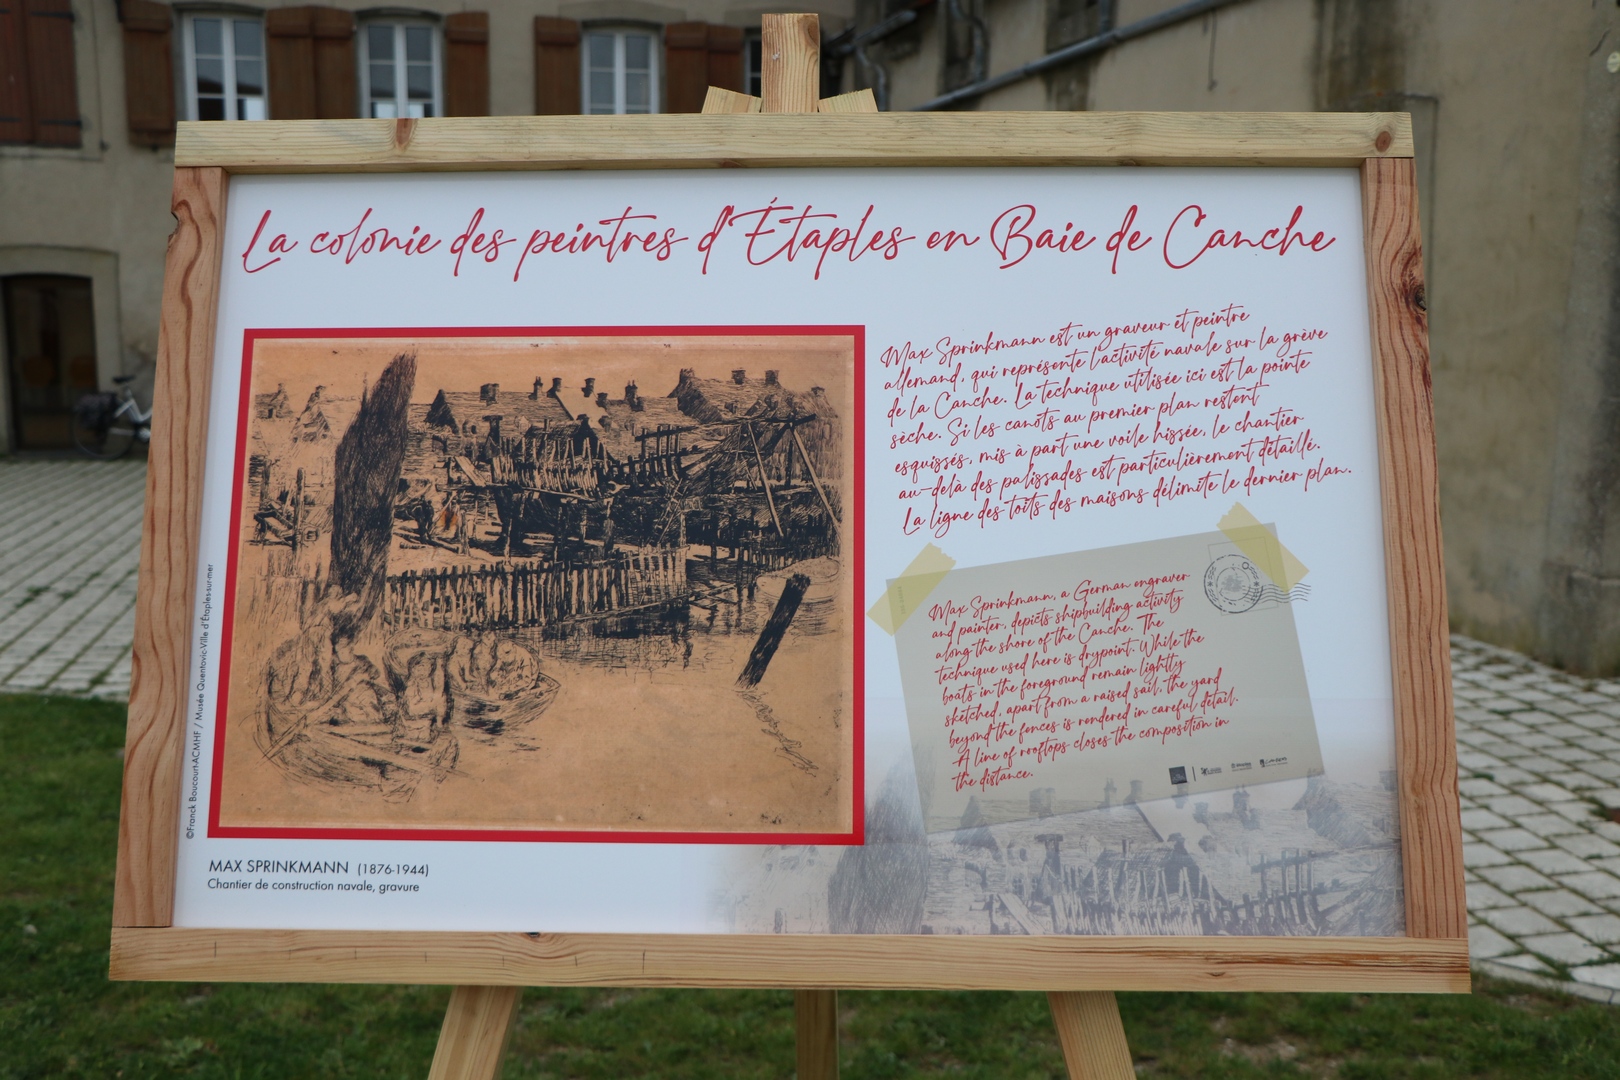 La colonie des peintres d'Étaples en Baie de Canche
Max Sprinkmann est un graveur et peintre
allemand, qui représente l'activité navale sur la grève
de la Canche. La technique utilisée ici est la pointe
sèche. Si les canots au premier plan restent
esquissés, mis à part une voile hissée, le chantier
au-delà des palissades est particulièrement détaillé.
La ligne des toits des maisons délimite le dernier plan.
Max Sprinkmann, a German engraver
and painter, depicts shipbuilding activity
along the shore of the Canche. The
technique used here is drypoint. While the
boats in the foreground remain lightly
sketched, apart from a raised sail, the yard
beyond the fences is rendered in careful detail.
A line of rooftops closes the composition in
the distance.
©Franck Boucourt-ACMHF / Musée Quentovic-Ville d'Étaples-sur-mer
MAX SPRINKMANN (1876-1944)
Chantier de construction navale, gravure